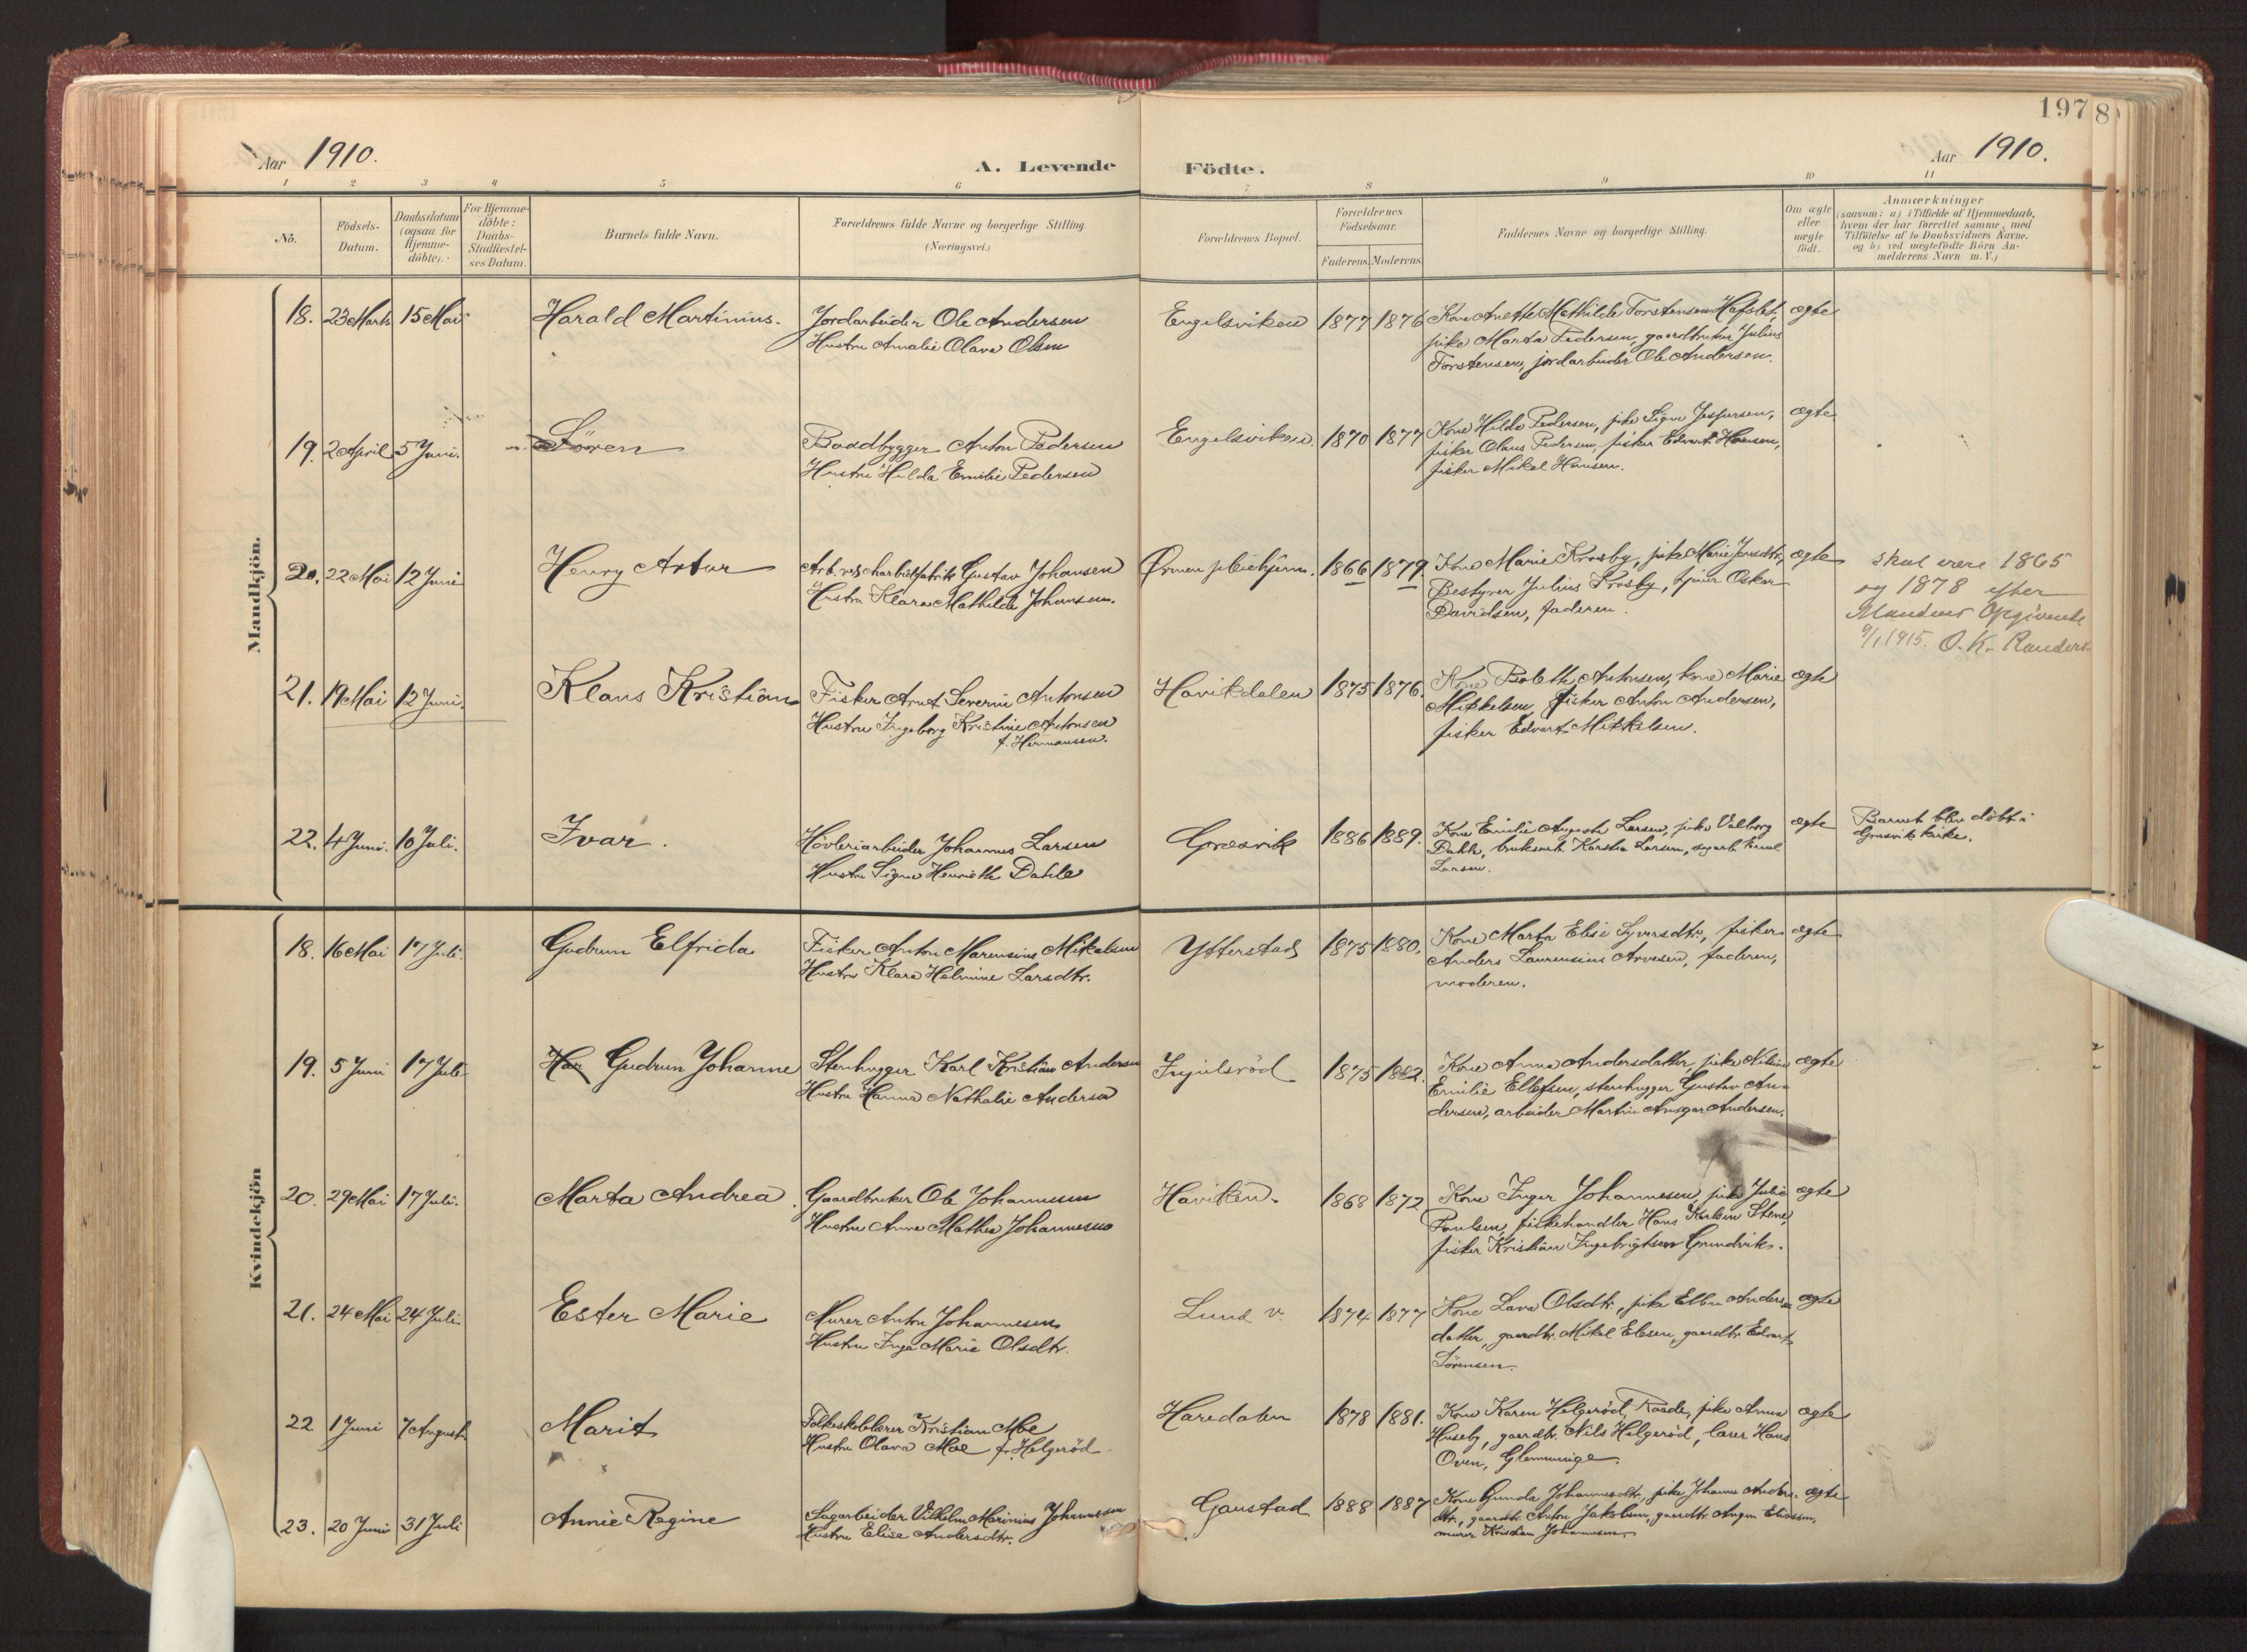 197 8
Aar 1910.
A. Levende Födte.
Aar 1910.
1 2 3 4 5 6 7 8 9 10 11
No.
Födsels-Datum.
Daabsdatum (ogsaa for Hjemme-döbte).
For Hjemme-döbte: Daabs-Stadfæstel-ses Datum.
Barnets fulde Navn.
Forældrenes fulde Navne og borgerlige Stilling. (Næringsvei.)
Forældrenes Bopæl.
Forældrenes Födselsaar.
Faderens. Moderens.
Faddernes Navne og borgerlige Stilling.
Om ægte eller uægte födt.
Anmærkninger
(saasom: a) i Tilfælde af Hjemmedaab,
hvem der har forrettet samme, med
Tilföielse af to Daabsvidners Navne,
og b) ved uægtefödte Börn An-
melderens Navn m. V.)
Mandkjön.
18. 23 Marts 15 Mai Harald Martinius. Jordarbeider Ole Andersen Engelsviken 1877 1876 Kone Anette Mathilde Torstensen Hafslet, ægte
Hustru Amalie Olava Olsen pike Marta Pedersen, gaardbruker Julius
Torstensen, jordarbeider Ole Andersen.
19. 2 April 5 Juni. Sören Baadbygger Anton Pedersen Engelsviken. 1870 1877 Kone Hilda Pedersen, pike Signe Jespersen, ægte
Hustru Hilda Emilie Pedersen fisker Olaus Pedersen, fisker Edvart Hansen,
fisker Mikal Hansen.
20. 22 Mai 12 Juni Henry Artur Arb. ved Gustav Johansen Ørmen pleiehjem. 1866 1879. Kone Marie Krosby, pike Marie Jensdtr, ægte skal være 1865
Hustru Klara Mathilde Johansen. Bestyrer Julius Krosby, tjener Oskar og 1878 efter
Davidsen, faderen. Mandens Opgivende
9/1 1915. O. K. Randers.
21. 19 Mai 12 Juni. Klaus Kristian Fisker Arnt Severin Antonsen Havikdalen 1875 1876. Kone Bolette Antonsen, kone Marie ægte
Hustru Ingeborg Kristine Antonsen Mikkelsen, fisker Anton Andersen,
f. Hermansen. fisker Edvart Mikkelsen.
22. 4 Juni. 10 Juli. Ivar. Høvleriarbeider Johannes Larsen Græsvik 1886 1889. Kone Emilie Augusta Larsen, pike Valborg ægte Barnet blev döbt i
Hustru Signe Henriette Dahle Dahle, bruksarb. Larsen, Græsvik kirke.
Larsen.
Kvindekjön
18. 16 Mai 17 Juli. Gudrun Elfrida Fisker Anton Marensius Mikalsen Ytterstad 1875 1880. Kone Marta Elise Syversdtr, fisker ægte
Hustru Klara Halmine Larsdtr. Anders Laurensius Arvesen, faderen,
moderen.
19. 5 Juni 17 Juli Han Gudrun Johanne Stenhugger Karl Kristian Andersen Injulsröd 1875 1882. Kone Anna Andersdatter, pike ægte
Hustru Hanna Nathalie Andersen Emilie Ellefsen, stenhugger Gustav An-
dersen, arbeider Martin Ansgar Andersen.
20. 29 Mai 17 Juli. Marta Andrea. Gaardbruker Ole Johannesen Haviken. 1868 1872 Kone Inger Johannesen, pike Julie ægte
Hustru Anne Mathea Johannesen Paulsen, fiskehandler Hans Karlsen Stene,
fisker Kristian Ingebrigtsen Grundvik.
21. 24 Mai 24 Juli. Ester Marie Murer Anton Johannesen Lund v. 1874 1877 Kone Lava Olsdtr, pike Ellen Anders- ægte
Hustru Inga Marie Olsdtr. datter, gaardbr. Mikal Elesen, gaardbr. Edvart
Sörensen.
22 1 Juni 7 August Marit Folkeskolelærer Kristian Moe Haredalen 1878 1881. Kone Karen Helgeröd, Raade, pike Anna ægte
Hustru Olava Moe f. Helgeröd. Huseby, gaardbr. Nils Helgeröd, lærer Hans
Oven, Glemminge.
23. 20 Juni 31 Juli Annie Regine Sagarbeider Vilhelm Marinius Johannessen Gaustad 1888 1887 Kone Gunda Johannesdtr, pike Johanne Anders- ægte
Hustru Elise Andersdtr. dtr, gaardbr. Anton Jakobsen, gaardbr. Eliassen,
murer Kristian Johannesen.